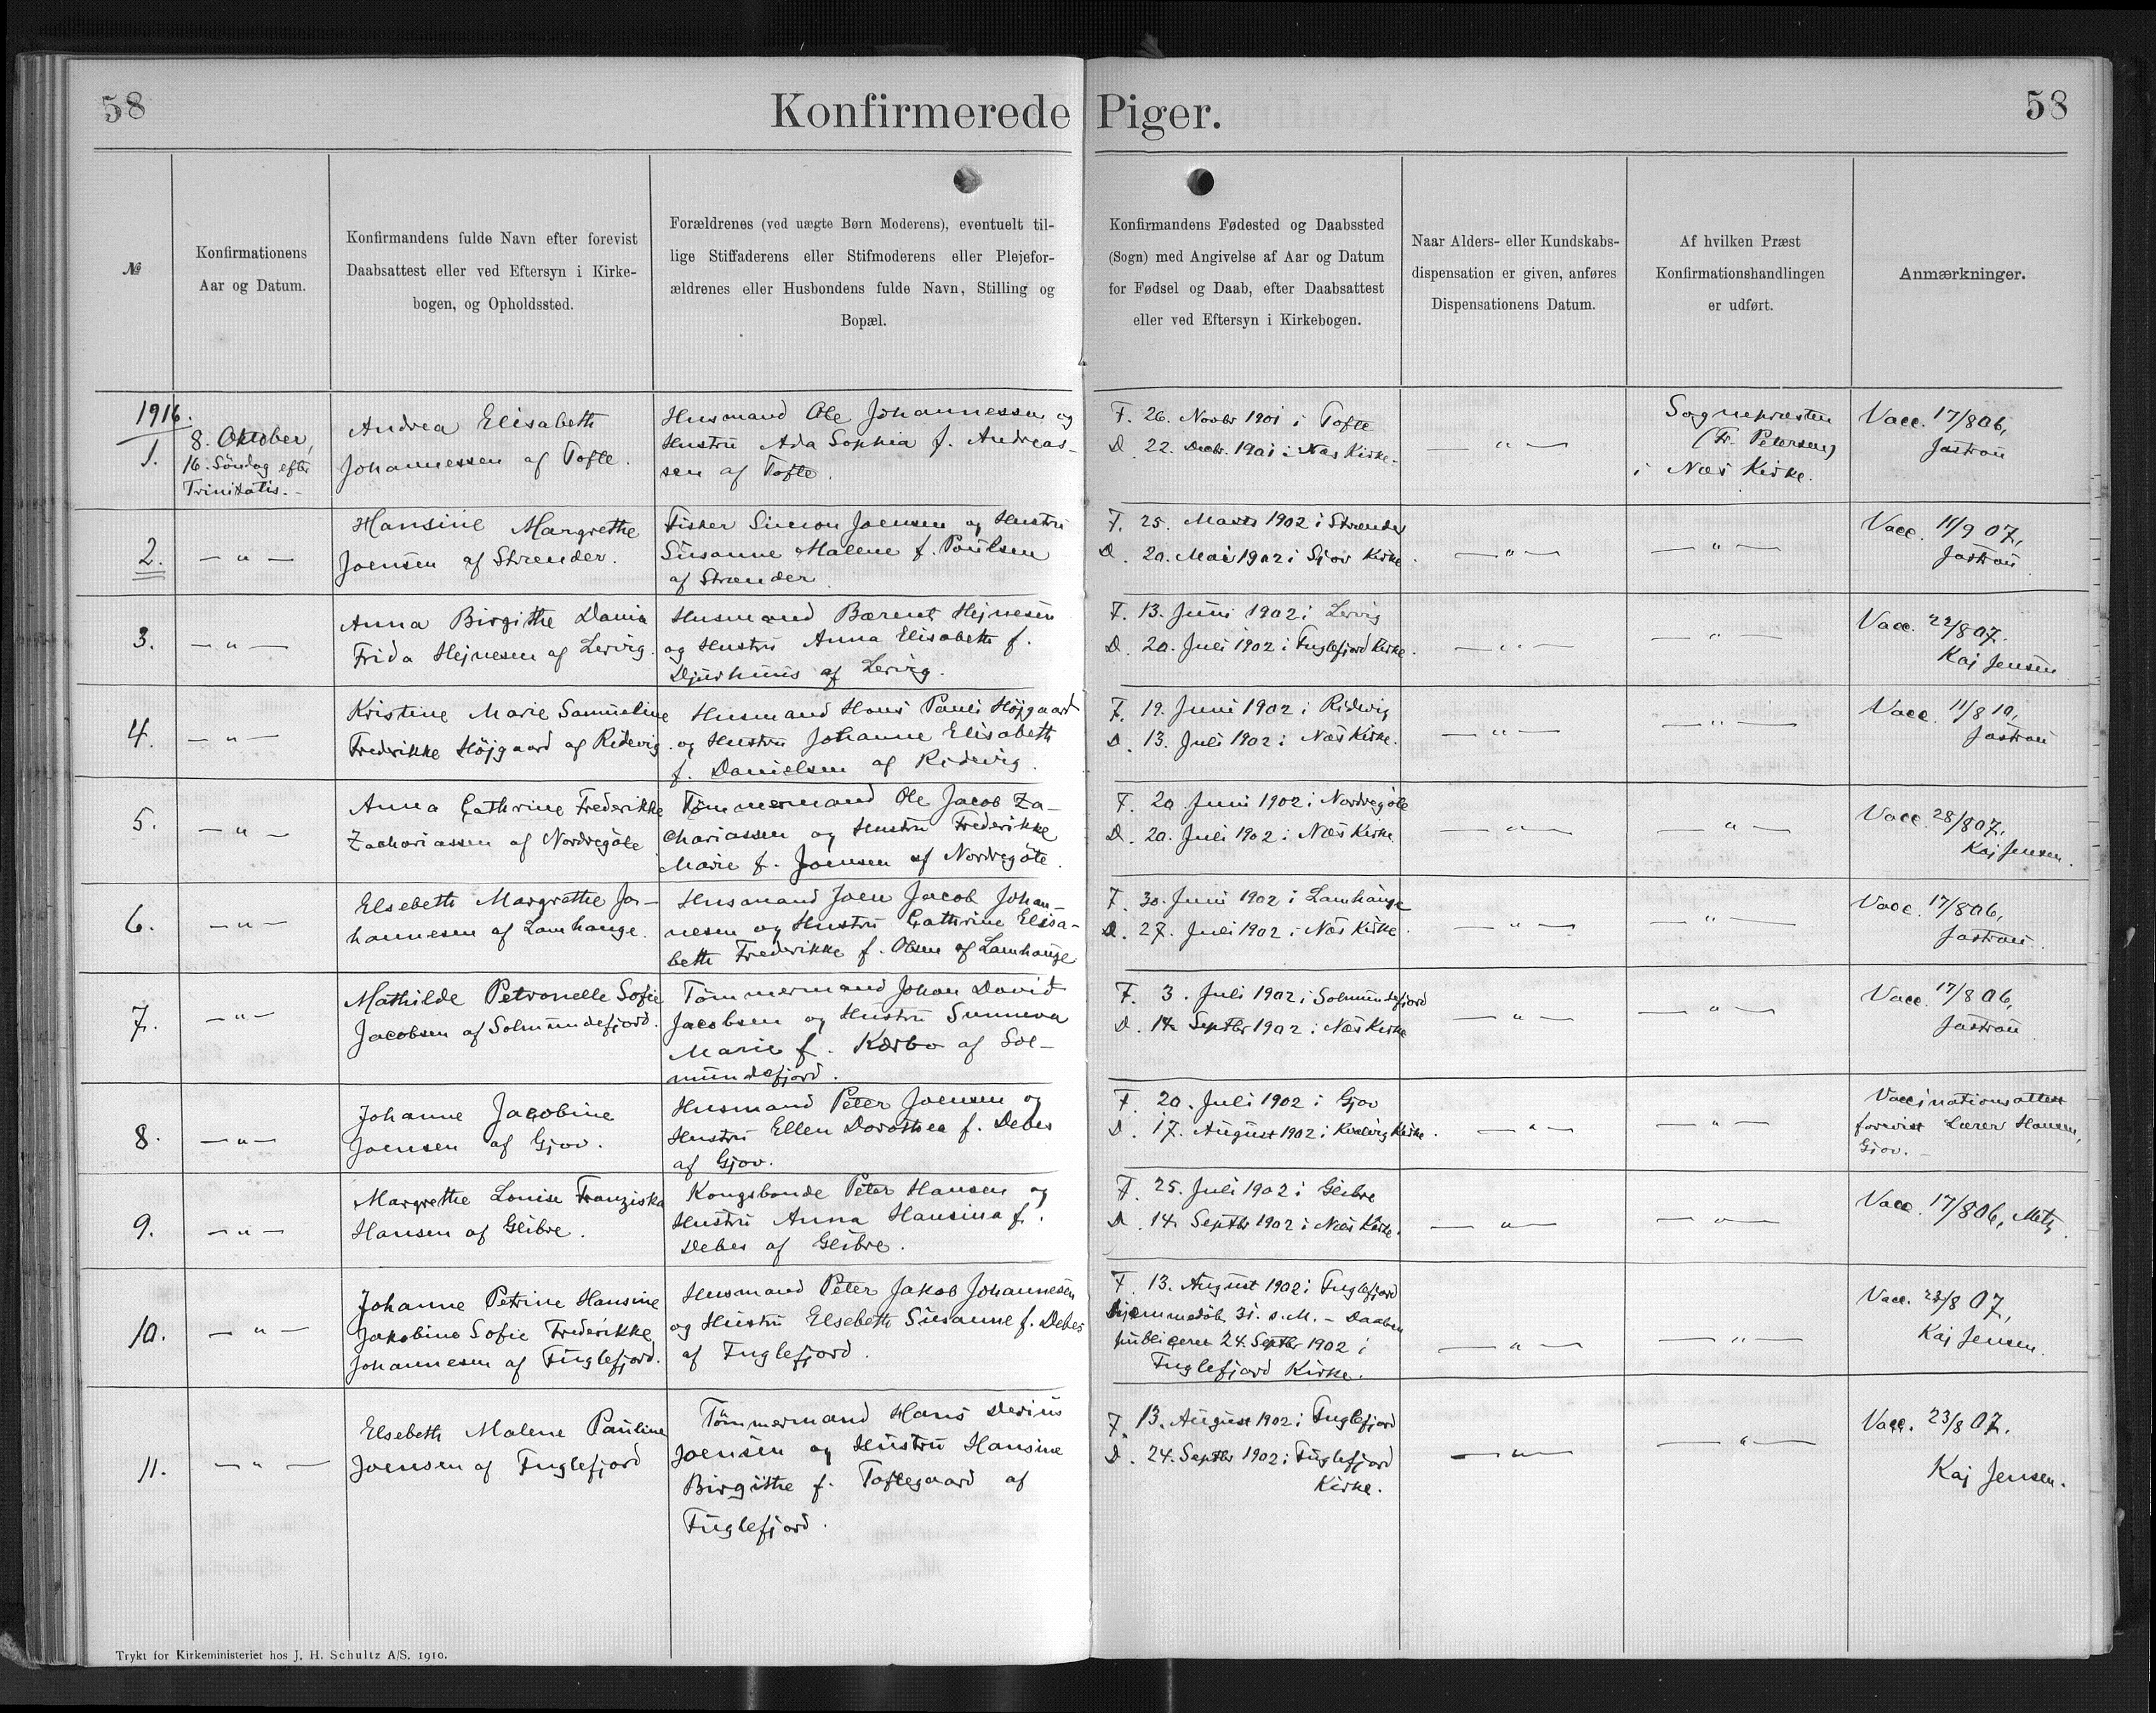 58
Konfirmerede Piger.
58
№
Konfirmationens
Aar og Datum.
Konfirmandens fulde Navn efter forevist
Daabsattest eller ved Eftersyn i Kirke-
bogen, og Opholdssted.
Forældrenes (ved uægte Børn Moderens), eventuelt til-
lige Stiffaderens eller Stifmoderens eller Plejefor-
ældrenes eller Husbondens fulde Navn, Stilling og
Bopæl.
Konfirmandens Fødested og Daabssted
(Sogn) med Angivelse af Aar og Datum
for Fødsel og Daab, efter Daabsattest
eller ved Eftersyn i Kirkebogen.
Naar Alders- eller Kundskabs-
dispensation er given, anføres
Dispensationens Datum.
Af hvilken Præst
Konfirmationshandlingen
er udført.
Anmærkninger.
1916.
1.
8. Oktober,
16. Söndag efter
Trinitatis. -
Andrea Elisabeth
Johannessen af Tofte.
Husmand Ole Johannessen og
Hustru Ada Sophia f. Andreas-
sen af Tofte.
F. 26. Novbr 1901 i Tofte
D. 22. Decbr. 1901 i Næs Kirke.
— " —
Sognepræsten
(Fr. Petersen)
i Næs Kirke.
Vacc. 17/8 06,
Jastrau
2.
— " —
Hansine Margrethe
Joensen af Strænder.
Fisker Simon Joensen og Hustru
Susanne Malene f. Poulsen
af Strænder
F. 25. Marts 1902 i Strænder
D. 20. Mai 1902 i Sjov Kirke.
— " —
— " —
Vacc. 11/9 07,
Jastrau
3.
— " —
Anna Birgithe Dania
Frida Hejnesen af Lervig.
Husmand Bærent Hejnesen
og Hustru Anna Elisabeth f.
Djurhuus af Lervig.
F. 13. Juni 1902 i Lervig
D. 20. Juli 1902 i Fuglefjord Kirke.
— " —
— " —
Vacc. 22/8 07.
Kaj Jensen
4.
— " —
Kristine Marie Samueline
Frederikke Höjgaard af Ridevig.
Husmand Hans Pauli Höjgaard
og Hustru Johanne Elisabeth
f. Danielsen af Ridevig.
F. 19. Juni 1902 i Ridevig
D. 13. Juli 1902 i Næs Kirke.
— " —
— " —
Vacc. 11/8 10,
Jastrau
5.
— " —
Anna Cathrine Frederikke
Zachariassen af Nordregöte
Tömmermand Ole Jacob Za-
chariassen og Hustru Frederikke
Marie f. Joensen af Nordregöte.
F. 20 Juni 1902 i Nordregöte
D. 20. Juli 1902 i Næs Kirke
— " —
— " —
Vacc. 28/8 07,
Kaj Jensen.
6.
— " —
Elsebeth Margrethe Jo-
hannesen af Lamhauge.
Husmand Joen Jacob Johan-
nesen og Hustru Cathrine Elisa-
beth Frederikke f. Olsen af Lamhauge
F. 30. Juni 1902 i Lamhauge
D. 27. Juli 1902 i Næs Kirke.
— " —
— " —
Vacc. 17/8 06,
Jastrau.
7.
— " —
Mathilde Petronelle Sofie
Jacobsen af Solmundefjord.
Tömmermand Johan David
Jacobsen og Hustru Sunneva
Marie f. Kærbo af Sol-
mundefjord.
F. 3. Juli 1902 i Solmundefjord
D. 14 Septbr 1902 i Næs Kirke
— " —
— " —
Vacc. 17/8 06,
Jastrau
8.
— " —
Johanne Jacobine
Joensen af Gjov.
Husmand Peter Joensen og
Hustru Ellen Dorothea f. Debes
af Gjov.
F. 20. Juli 1902 i Gjov
D. 17. August 1902 i Kvalvig Kirke.
— " —
— " —
Vaccinationsattest
forevist Lærer Hansen,
Gjov. -
9.
— " —
Margrethe Louise Franziska
Hansen af Glibre.
Kongsbonde Peter Hansen og
Hustru Anna Hansina f.
Debes af Glibre.
F. 25. Juli 1902 i Glibre
D. 14. Septbr 1902 i Næs Kirke.
— " —
— " —
Vacc. 17/8 06, Metz.
10.
— " —
Johanne Petrine Hansine
Jakobine Sofie Frederikke
Johannesen af Fuglefjord.
Husmand Peter Jakob Johannesen
og Hustru Elsebeth Susanne f. Debes
af Fuglefjord.
F. 13. August 1902 i Fuglefjord
Hjemmedöb 31. s. M. - Daaben
publiceret 24. Septbr 1902 i
Fuglefjord Kirke.
— " —
— " —
Vacc. 23/8 07,
Kaj Jensen.
11.
— " —
Elsebeth Malene Pauline
Joensen af Fuglefjord
Tömmermand Hans Derius
Joensen og Hustru Hansine
Birgithe f. Toftegaard af
Fuglefjord.
F. 13. August 1902 i Fuglefjord
D. 24. Septbr 1902 i Fuglefjord
Kirke.
— " —
— " —
Vacc. 23/8 07.
Kaj Jensen.
Trykt for Kirkeministeriet hos J. H. Schultz A/S. 1910.